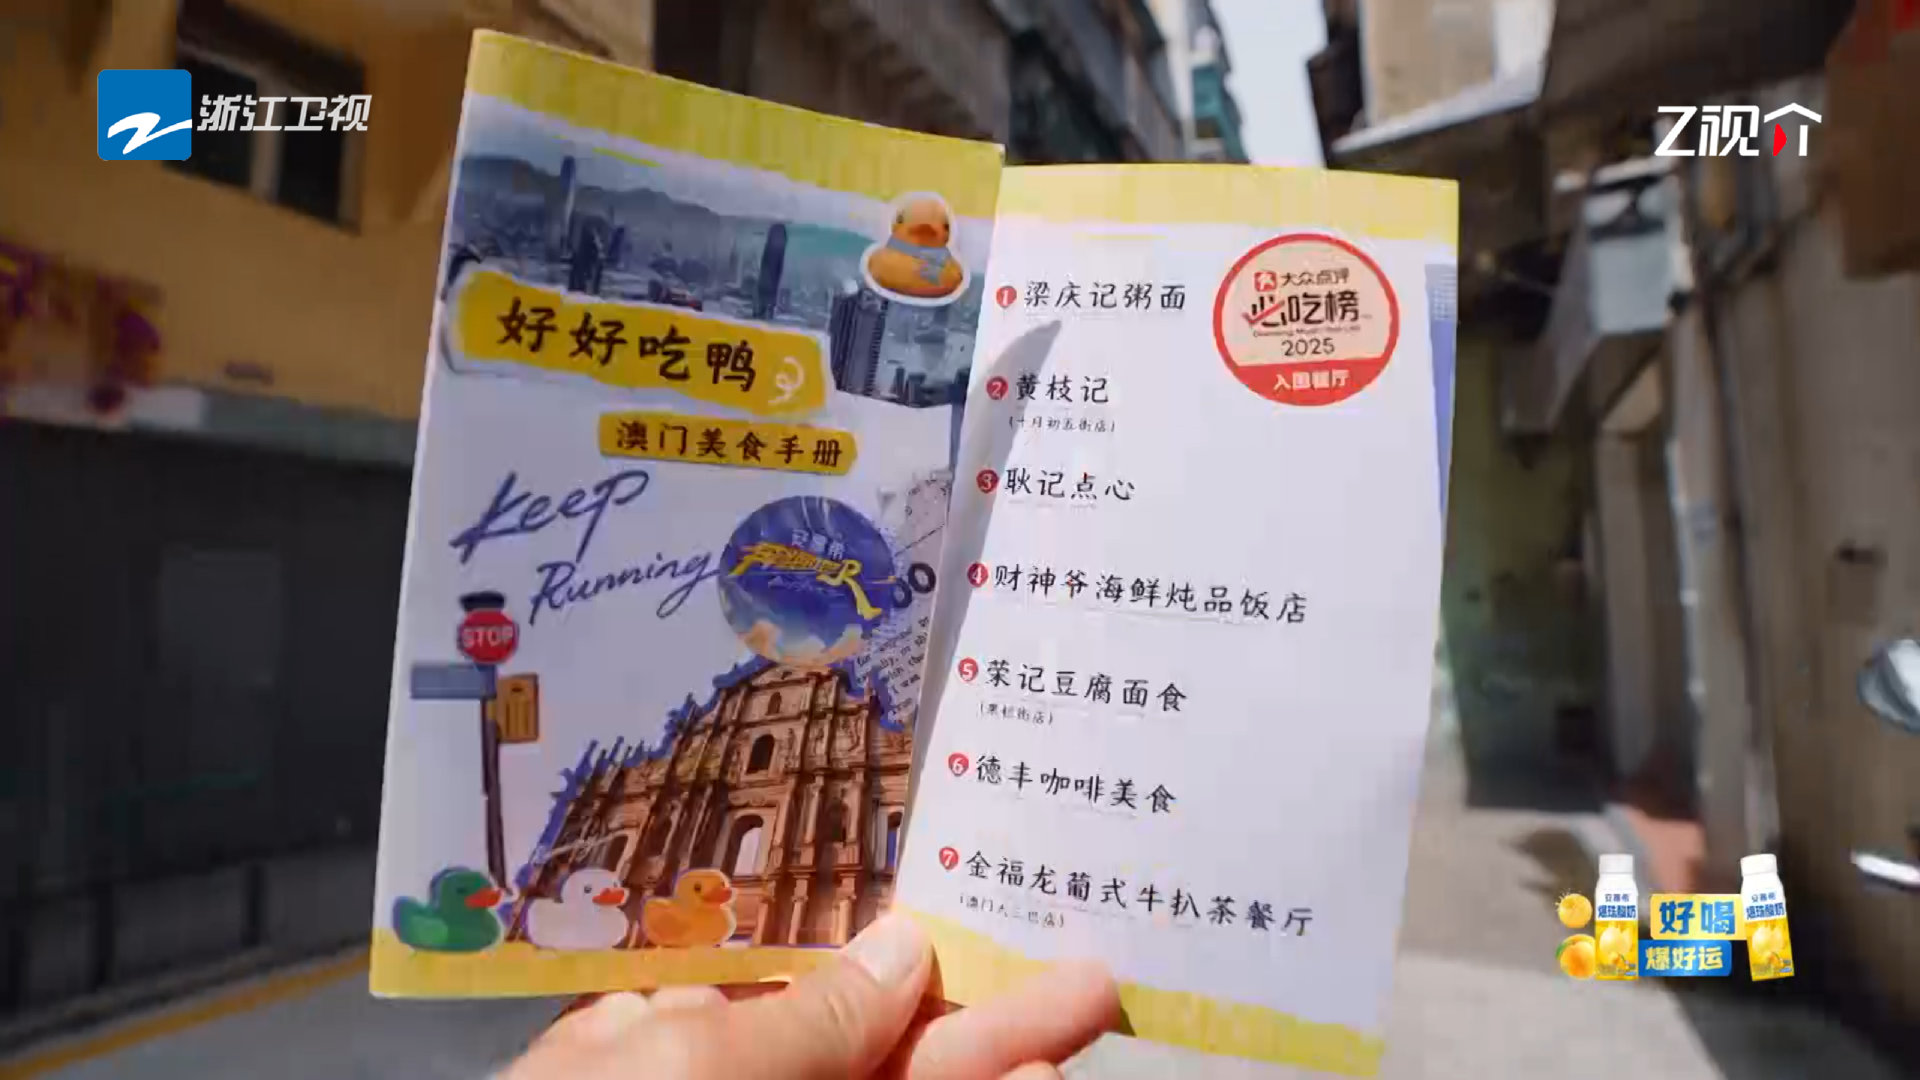 浙江卫视
Z视介
好好吃鸭
澳门美食手册
Keep
Running
STOP
大众点评
必吃榜
2025
入围餐厅
1 梁庆记粥面
2 黄枝记
(十月初五街店)
3 耿记点心
4 财神爷海鲜炖品饭店
5 荣记豆腐面食
(果栏街店)
6 德丰咖啡美食
7 金福龙葡式牛扒茶餐厅
(澳门大三巴店)
安慕希
爆珠酸奶
好喝
爆好运